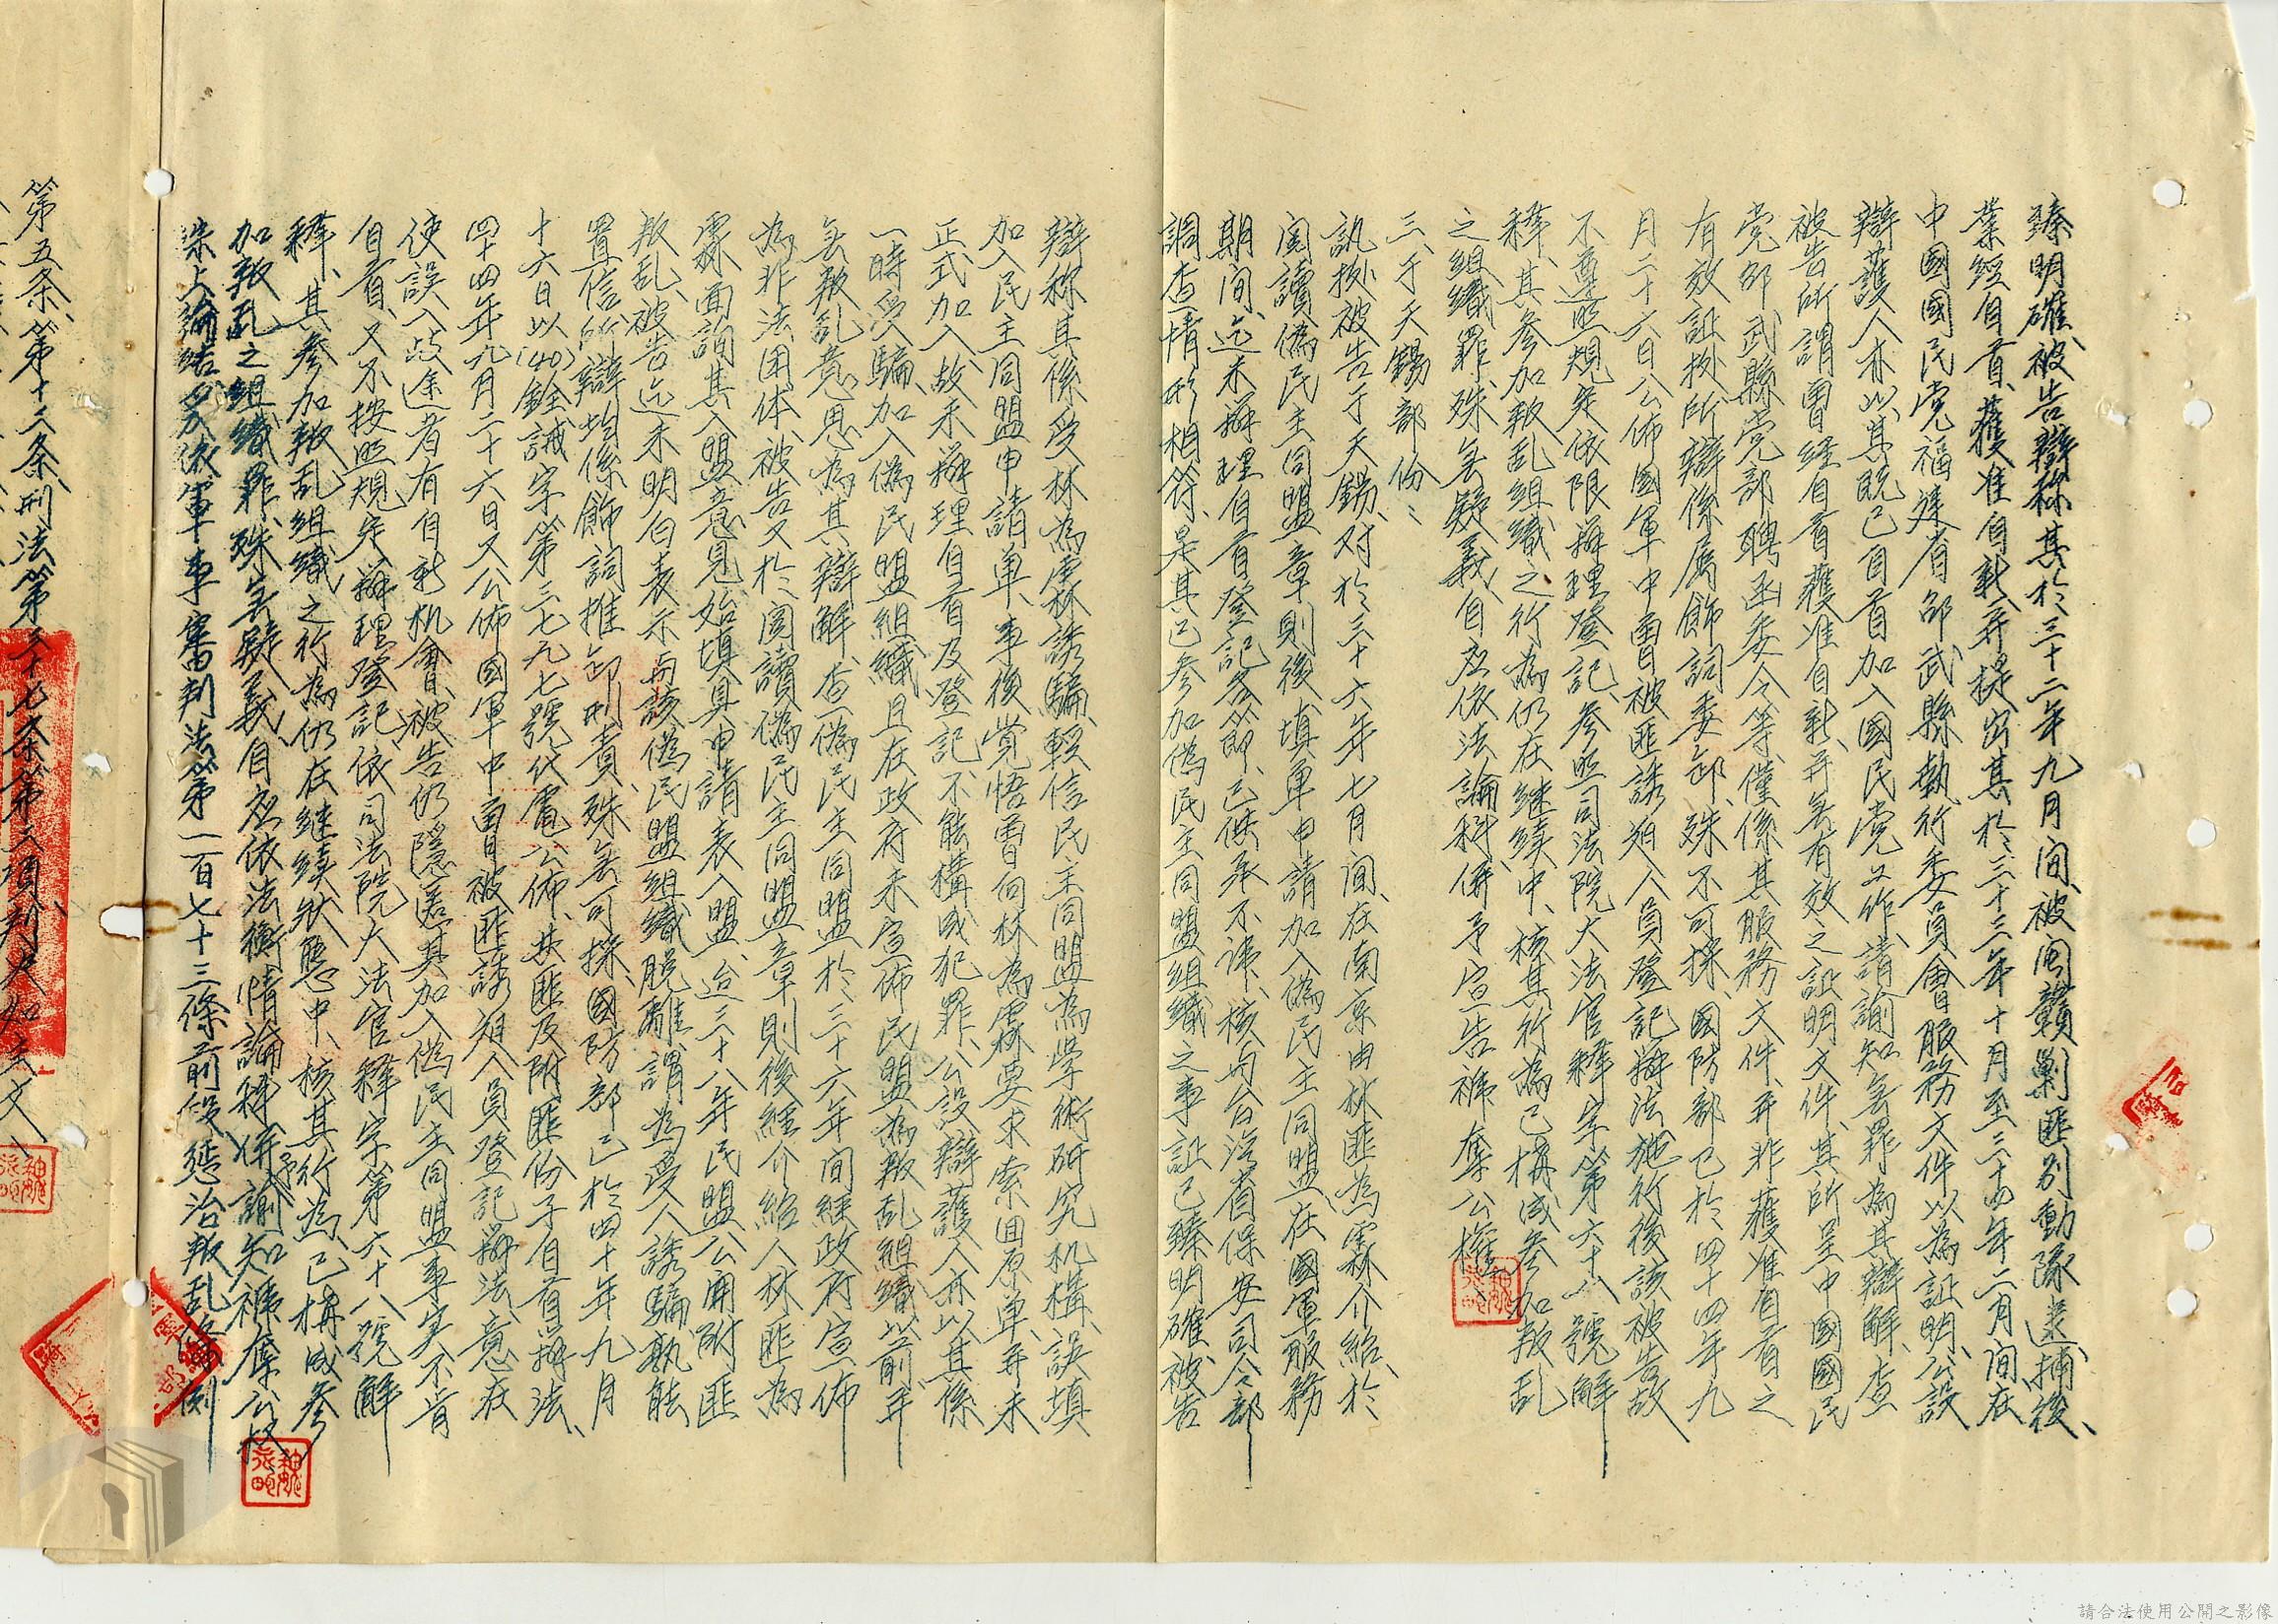 臻明確、被告辯稱其於三十二年九月間、被閩贛剿匪別動隊逮捕後、
業經自首、獲准自新、并提出其於三十三年十月至三十四年二月間、在
中國國民党福建省邵武縣執行委員會服務文件以為証明、公設
辯護人亦以其既已自首加入國民党工作、請諭知無罪為其辯解、查
被告所謂曾經自首獲准自新、并無有效之証明文件、其所呈中國國民
党邵武縣党部聘函委令等、僅係其服務文件、并非獲准自首之
有效証據、所辯係屬飾詞委卸、殊不可採、國防部已於四十四年九
月二十六日公佈國軍中曾被匪誘迫人員登記辦法、施行後該被告故
不遵照規定依限辦理登記、參照司法院大法官釋字第六十八號解
釋、其參加叛乱組織之行為仍在継續中、核其行為已構成參加叛乱
之組織罪、殊無疑義、自应依法論科、併予宣告褫奪公權、
三、于天錫部份：
訊據被告于天錫、对於三十六年七月間、在南京由林匪為霖介紹、於
閱讀偽民主同盟章則後、填單申請加入偽民主同盟、在國軍服務
期間、迄未辦理自首登記各節、已供承不諱、核与台湾省保安司令部
調查情形相符、是其已參加偽民主同盟組織之事証已臻明確、被告
辯稱其係受林為霖誘騙、輕信民主同盟為學術研究机構、誤填
加入民主同盟申請單、事後覚悟曾向林為霖要求索回原單、并未
正式加入、故未辦理自首及登記、不能構成犯罪、公設辯護人亦以其係
一時受騙、加入偽民盟組織、且在政府未宣佈民盟為叛乱組織以前、并
無叛乱意思為其辯解、查偽民主同盟於三十六年間経政府宣佈
為非法团体、被告又於閱讀偽民主同盟章則後経介紹人林匪為
霖面詢其入盟意見、始填具申請表入盟、迨三十八年民盟公開附匪
叛乱、被告迄未明白表示与該偽民盟組織脱離、謂為受人誘騙、孰能
置信、所辯均係飾詞推卸刑責、殊無可採、國防部已於四十年九月
十六日以(40)銓誠字第三七九七號代電公佈、共匪及附匪份子自首辦法、
四十四年九月二十六日又公佈國軍中曾被匪誘迫人員登記辦法、意在
使誤入歧途者有自新机會、被告仍隱匿其加入偽民主同盟事实不肯
自首、又不按照規定辦理登記、依司法院大法官釋字第六十八號解
釋、其參加叛乱組織之行為仍在継續狀態中、核其行為、已構成參
加叛乱之組織罪、殊無疑義、自应依法衡情論科、併予諭知褫奪公权、
柒上論結、应依軍事審判法第一百七十三條前段、懲治叛乱條例
第五条、第十二条、刑法第三十七条第二項、判決如主文、
請合法使用公開之影像